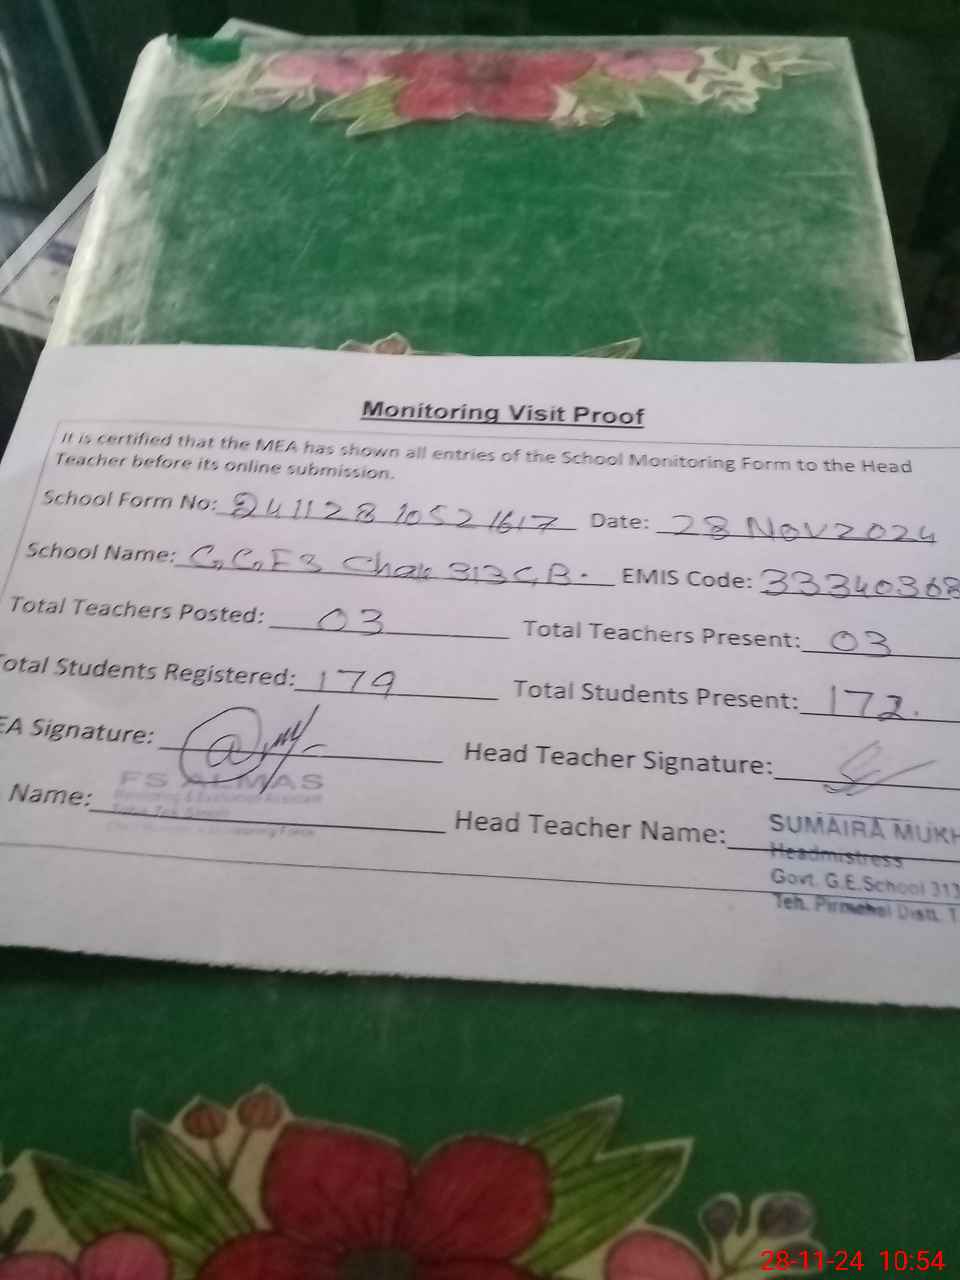 Monitoring Visit Proof
It is certified that the MEA has shown all entries of the School Monitoring Form to the Head
Teacher before its online submission.
School Form No: 24112810521617 Date: 28 Nov 2024
School Name: G.G.E.S Chak 313 G.B. EMIS Code: 33340368
Total Teachers Posted: 03 Total Teachers Present: 03
Total Students Registered: 179 Total Students Present: 172.
EA Signature: Head Teacher Signature:
FS ALMAS
Name: Head Teacher Name: SUMAIRA MUKH
Headmistress
Govt. G.E.School 313
Teh. Pirmahal Distt. T
28-11-24 10:54